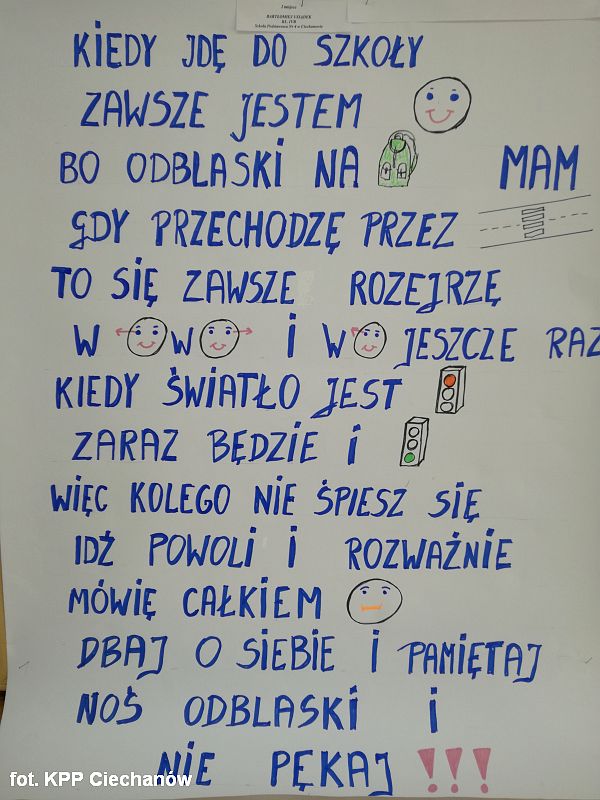 I miejsce
BARTŁOMIEJ
KL. IVB
Szkoła Podstawowa Nr 4 w Ciechanowie
KIEDY JDĘ DO SZKOŁY
ZAWSZE JESTEM
BO ODBLASKI NA MAM
GDY PRZECHODZĘ PRZEZ
TO SIĘ ZAWSZE ROZEJRZĘ
W W I W JESZCZE RAZ
KIEDY ŚWIATŁO JEST
ZARAZ BĘDZIE I
WIĘC KOLEGO NIE ŚPIESZ SIĘ
IDŹ POWOLI I ROZWAŻNIE
MÓWIĘ CAŁKIEM
DBAJ O SIEBIE I PAMIĘTAJ
NOŚ ODBLASKI I
NIE PĘKAJ !!!
fot. KPP Ciechanów